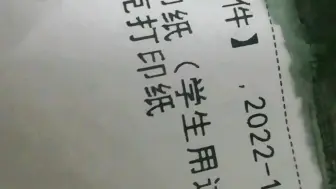 件】 .2022-1
印纸（学生用
打印纸